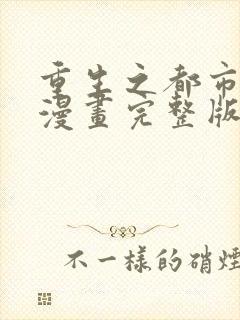 重生之都市
漫畫完整版
不一樣的硝煙